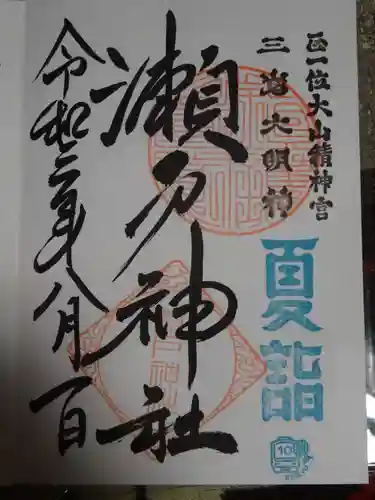 正一位大山積神宮
三嶌大明神
夏詣
瀬戸神社
令和二年八月一日
10